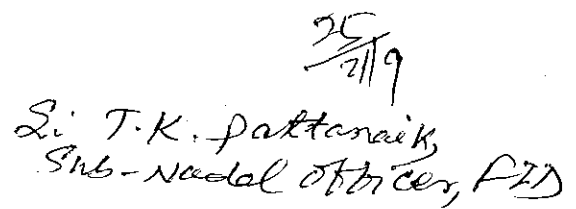 Sri T.K. Pattanaik,
Sub-Nodal Officer, FID